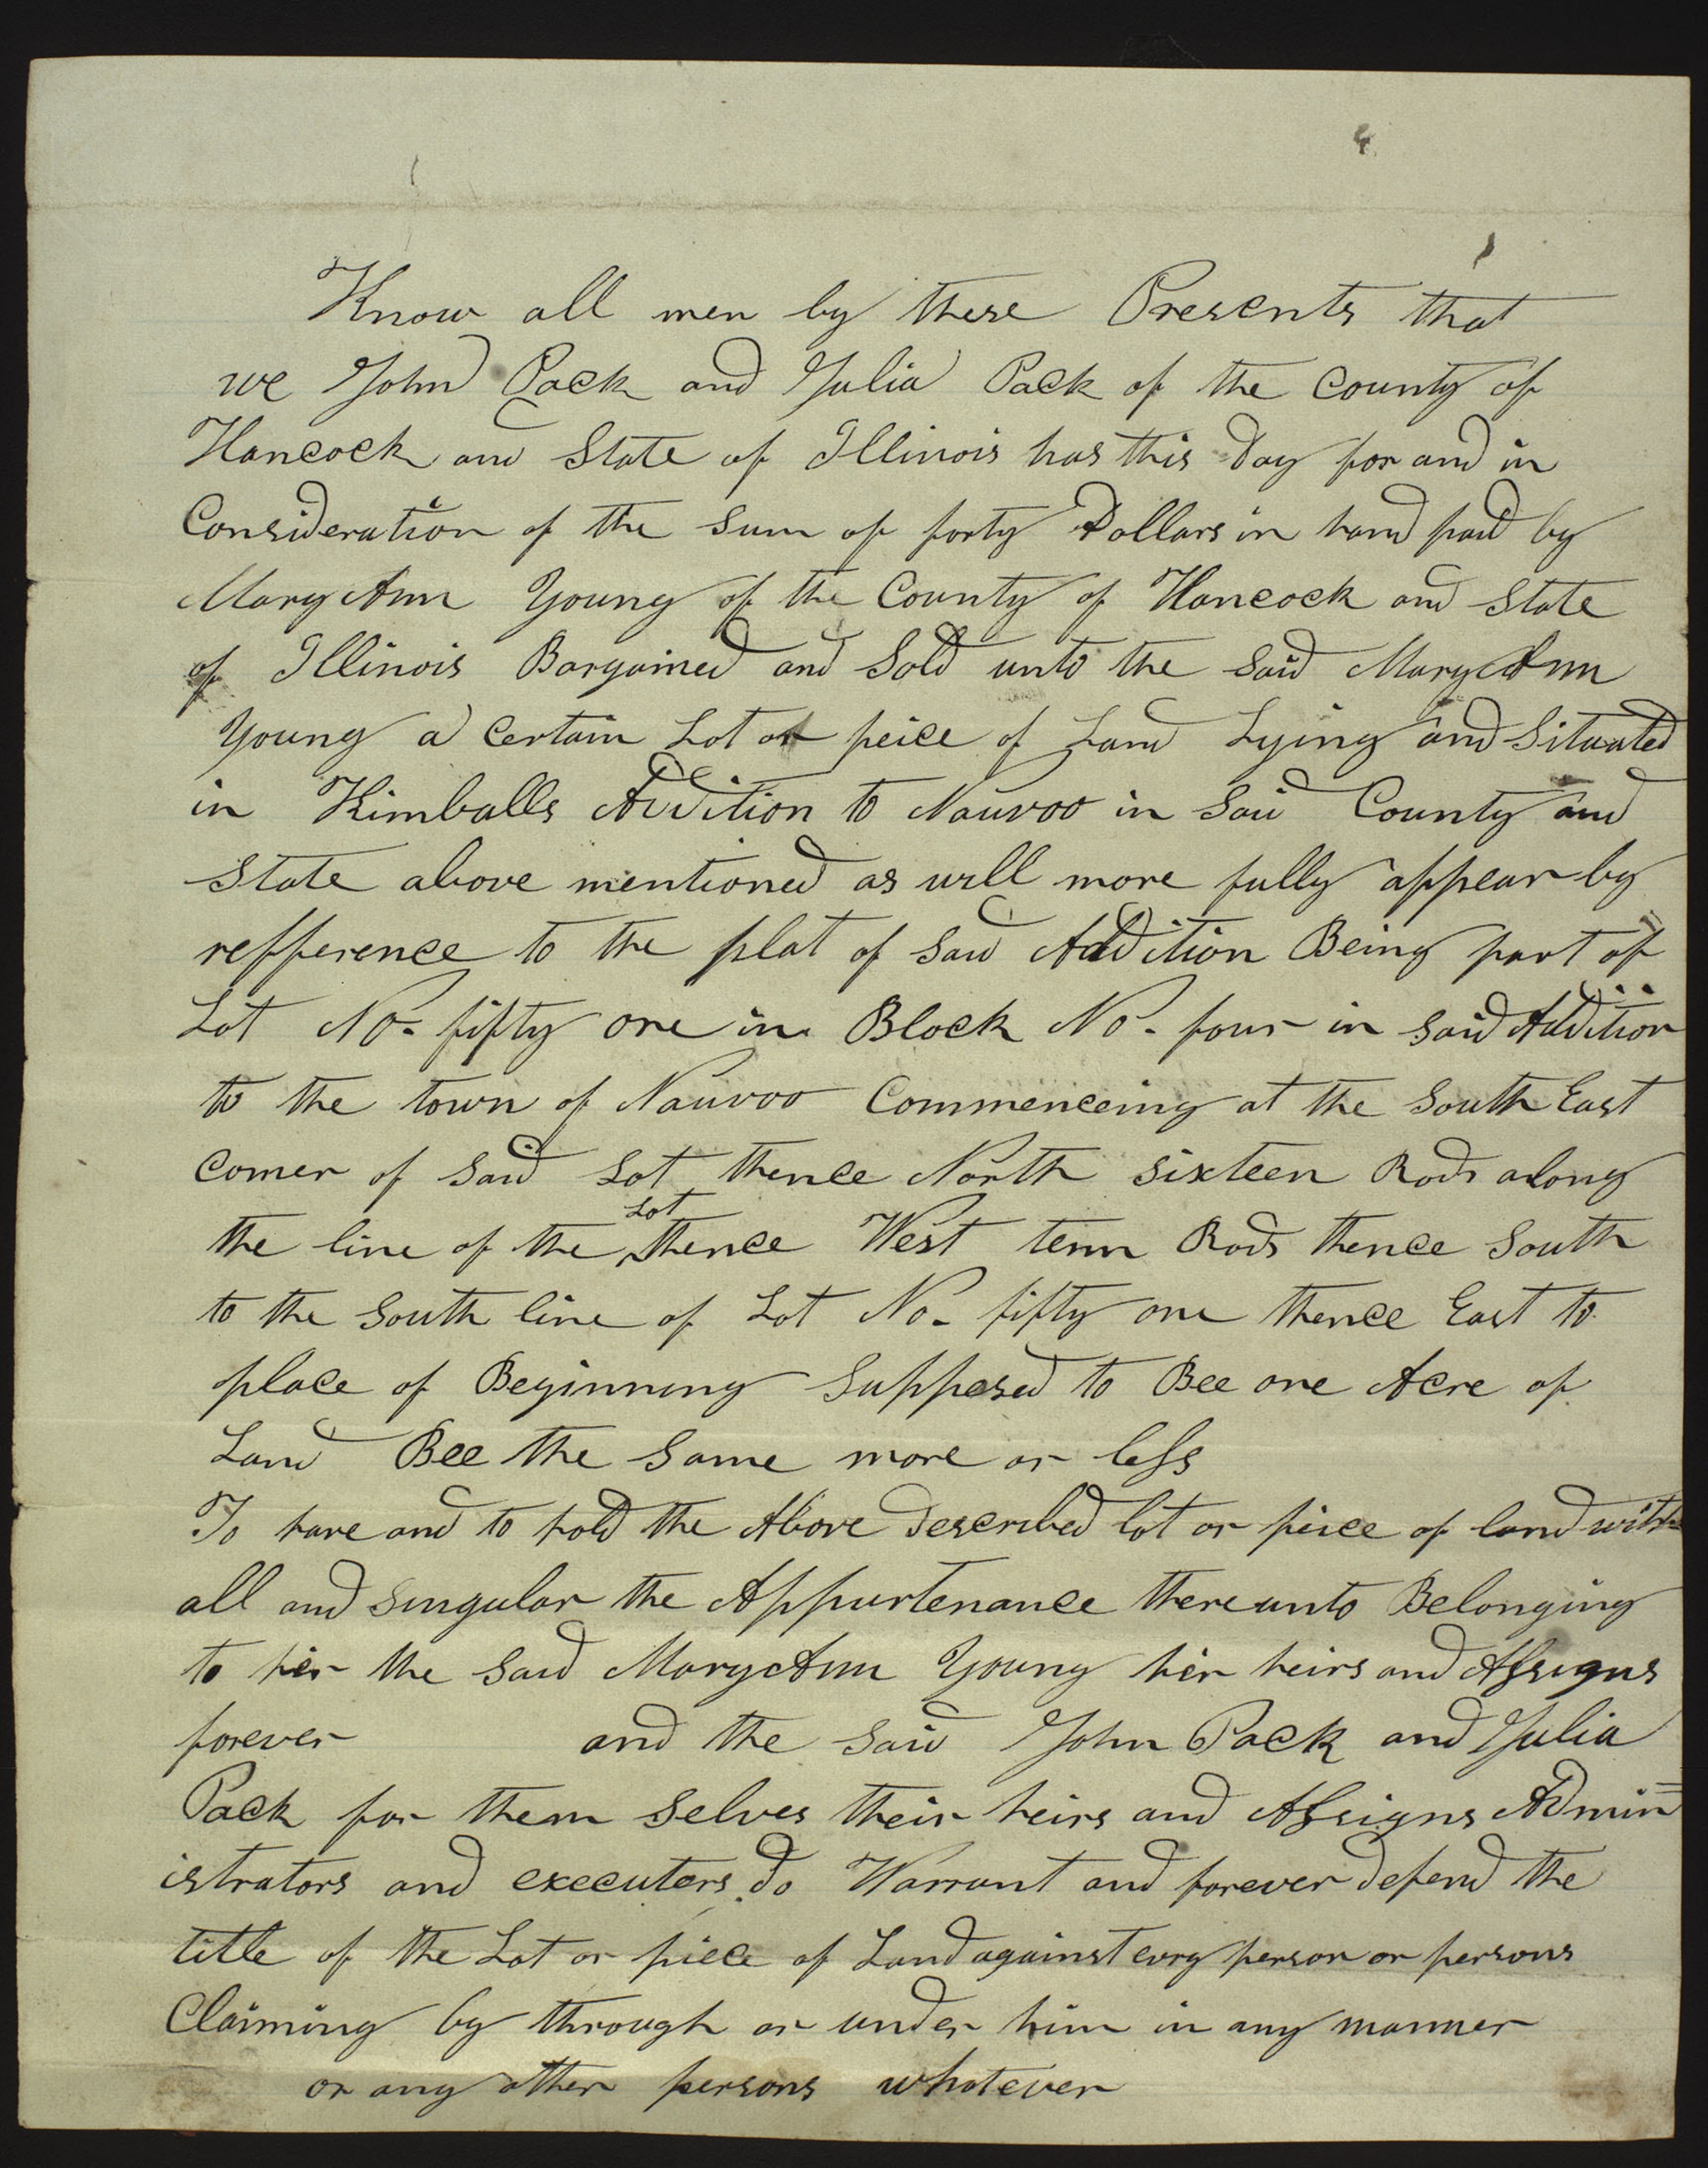 Know all men by these Presents that
we John Pack and Julia Pack of the County of
Hancock and State of Illinois has this Day for and in
Consideration of the Sum of forty Dollars in hand paid by
Mary Ann Young of the County of Hancock and State
of Illinois Bargained and Sold unto the Said Mary Ann
Young a Certain Lot or peice of Land Lying and Situated
in Kimballs Addition to Nauvoo in Said County and
State above mentioned as will more fully appear by
refference to the plat of Said Addition Being part of
Lot No- fifty one in Block No- four in Said Addition
to the town of Nauvoo Commenceing at the South East
Corner of Said Lot thence North Sixteen Rods along
the line of the Lot thence West tenn Rods thence South
to the South line of Lot No- fifty one thence East to
place of Beginning Supposed to Bee one Acre of
Land Bee the Same more or less
To have and to hold the Above Described lot or peice of land with
all and Singular the Appurtenance thereunto Belonging
to her the Said Mary Ann Young her heirs and Assigns
forever and the Said John Pack and Julia
Pack for them Selves their heirs and Assigns Admin=
istrators and executors do Warrant and forever defend the
title of the Lot or piece of Land against evry person or persons
Claiming by through or under him in any manner
or any other persons whatever